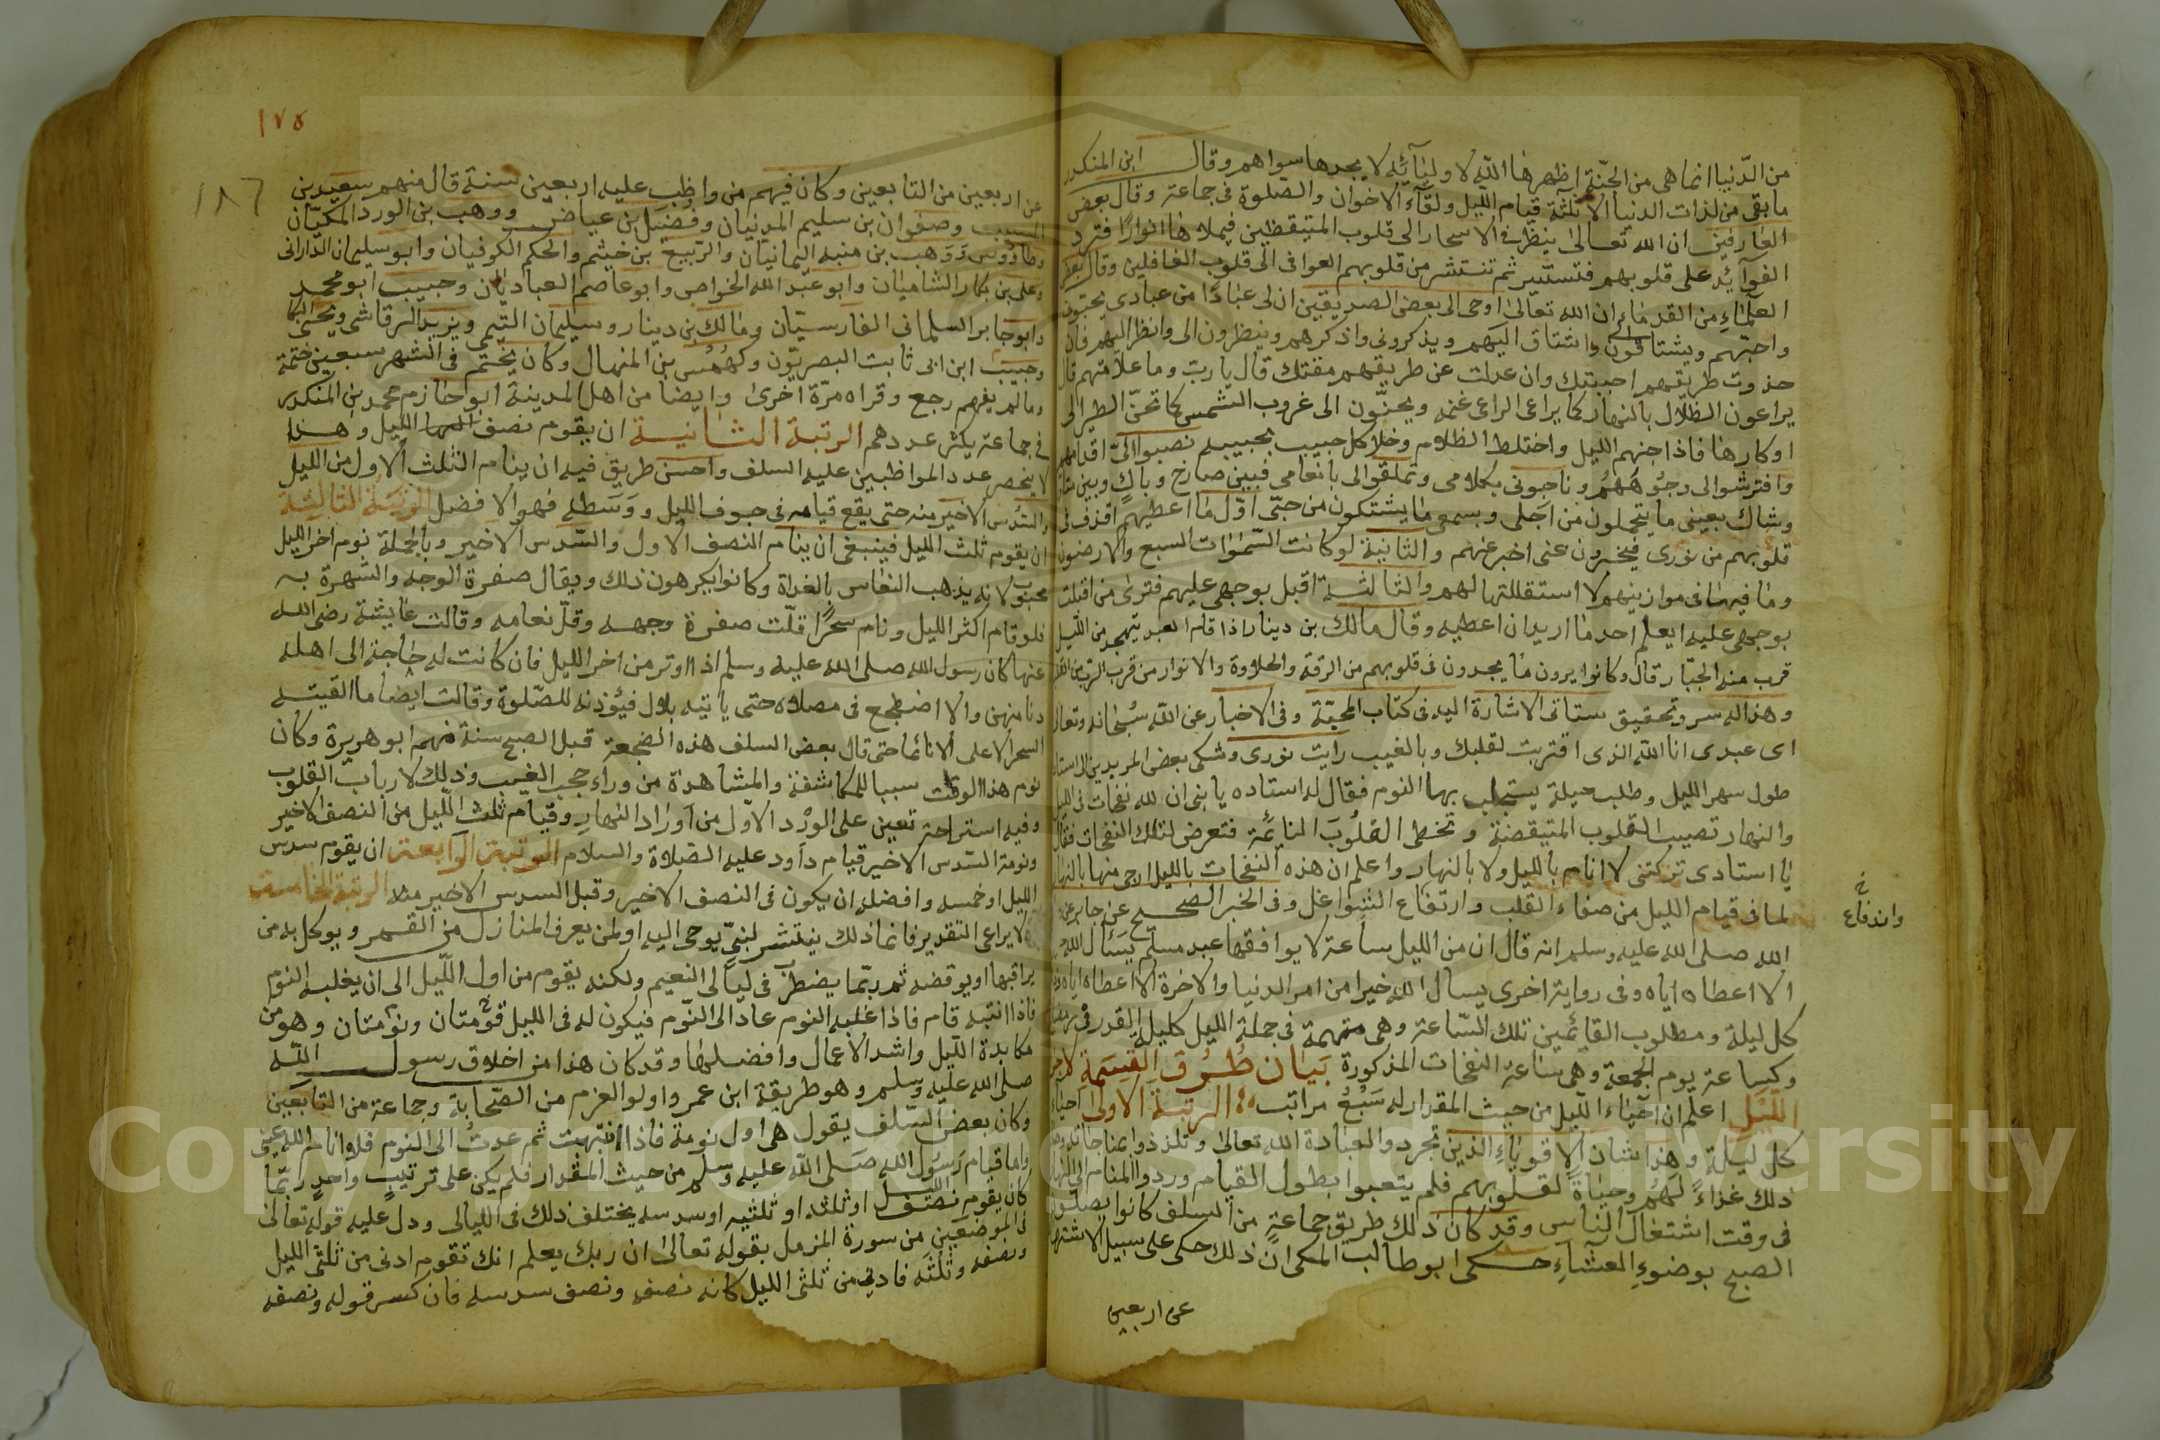 من الدّنيا انما هى من الجنّة اظهرها اللّه لاوليآئه لا يجدها سواهم وقال ابن المنكدر
ما بقى من لذات الدنيا الا ثلثة قيام اللّيل ولقآء الاخوان والصّلوة فى جماعة وقال بعض
العارفين ان الله تعالى ينظر فى الاسحار الى قلوب المتيقظين فيملاها انوارًا فترد
الفوآئد على قلوبهم فتستنير ثم تنتشر من قلوبهم العوافى الى قلوب الغافلين وقال بعض
العلماء من القدماء ان الله تعالى اوحى الى بعض الصديقين ان لى عبادًا من عبادى يحبّون
واحبّهم ويشتاقون واشتاق اليهم ويذكرونى واذكرهم وينظرون الى وانظر اليهم فان
حذوت طريقهم احببتك وان عدلت عن طريقهم مقتك قال يا ربّ وما علامتهم قال
يراعون الظلال بالنهار كما يراعى الراعى غنمه ويحنّون الى غروب الشمس كما تحنّ الطير الى
اوكارها فاذا جنهم الليل واختلط الظلام وخلا كل حبيب بحبيبه نصبوا الىّ اقدامهم
وافترشوا الى وجوههم وناجونى بكلامى وتملقوا الى بانعامى فبين صارخ وباكٍ وبين متأوه
وشاك بعينى ما يتحملون من اجلى وبسمعى ما يشتكون من حبّى اوّل ما اعطيهم اقذف فى
قلوبهم من نورى فيخبرون عنى كما اخبر عنهم والثانية لو كانت السّمٰوات السبع والارضون
وما فيها فى موازينهم لاستقللتها لهم والثالثة اقبل بوجهى عليهم فترى من اقبلت
بوجهى عليه ايعلم احد ما اريد ان اعطيه وقال مالك بن دينار اذا قام العبد يتهجد من الليل
قرب منه الجبّار قال وكانوا يرون ما يجدون فى قلوبهم من الرقة والحلاوة والانوار من قرب الربّ من القلب
وهذا له سر وتحقيق ستاتى الاشارة اليه فى كتاب المحبّة وفى الاخبار عن اللّه سُبحانه وتعالى
اى عبدى انا اللّه الذى اقتربت لقلبك وبالغيب رايت نورى وشكى بعض المريدين لاستاذه
طول سهر الليل وطلب حيلة يستجلب بها النوم فقال له استاده يا بنى ان لله نفحات فى الليل
والنهار تصيب القلوب المتيقضة وتخطى القلُوبَ النائمة فتعرض لتلك النفحات فقال
يا استادى تركتنى لا انام بالليل ولا بالنهار واعلم ان هذه النفحات بالليل ارجى منها بالنهار
لما فى قيام الليل من صفاء القلب وارتفاع الشواغل وفى الخبر الصحيح عن جابر عن
خ واندفاع
الله صلى الله عليه وسلم انه قال ان من الليل ساعة لا يوافقها عبد مسلم يَسَئال اللّه
الا اعطاه اياه وفى رواية اخرى يسال الله خيرا من امر الدنيا والاخرة الا اعطاه اياه وذلك
كل ليلة ومطلوب القائمين تلك السّاعة وهى مبهمة فى جملة الليل كليلة القدر فى
وكساعة يوم الجمعة وهى ساعة النفحات المذكورة بَيَان طُرُق القِسْمة
اللّيْل اعلم ان احياء اللّيل من حيث المقدار له سَبْعُ مراتب الرتبة الاولى احياء
كل ليلة وهذا شان الاقوياء الذين تجردوا لعبادة الله تعالى وتلذذوا بمناجاته وصار
ذلك غذاءً لهُم وحياةً لقلوبهم فلم يتعبوا بطول القيام وردوا المنام الى النهار
فى وقت اشتغال الناس وقد كان ذلك طريق جماعةٍ من السلف كانوا يصلّون
الصبح بوضوء العشآء حكى ابو طالب المكى ان ذلك حكى على سبيل الاشتهار
عن اربعين
١٧٥
١٨٦
عن اربعين من التابعين وكان فيهم من واظب عليه اربعين سنة قال منهم سعيد بن
المسيب وصفوان بن سليم المدنيان وفضيل بن عياض ووهب بن الورد المكيّان
وطاوُس ووهب بن منبه اليمانيان والربيع بن خيثم والحكم الكوفيان وابو سليمان الدّارانى
وعلى بن بكار الشاميان وابو عبد الله الخواص وابو عاصم العباديان وحبيب ابو محمد
وابو جابر السلمانى الفارسيّان ومالك بن دينار وسليمان التيمى ويزيد الرقاشى ويحيى البكا
وحبيب ابن ابى ثابت البصريّون وكهمس بن المنهال وكان يختم فى الشهر سبعين ختمة
وما لم يفهم رجع وقراه مرّة اخرى وايضا من اهل المدينة ابو حازم محمد بن المنكدر
فى جماعة يكثر عددهم الرتبة الثانية ان يقوم نصف الليل وهذا
لا ينحصر عدد المواظبين عليه السلف واحسن طريق فيه ان ينام الثلث الاول من الليل
والسُّدس الاخير منه حتى يقع قيامه فى جوف الليل ووَسَطِه فهو الافضل الرتبة الثالثة
ان يقوم ثلث الليل فينبغى ان ينام النصف الاول والسّدس الاخير وبالجملة نوم اخر الليل
محبوب لانه يذهب النعاس بالغداة وكانوا يكرهون ذلك ويقال صفرة الوجه والشهرة به
فلو قام اكثر الليل ونام سحرًا قلّت صفرة وجهه وقلّ نعاسه وقالت عايشة رضى الله
عنها كان رسول الله صلى الله عليه وسلم اذا اوتر من اخر الليل فان كانت له حاجة الى اهله
دنا منهن والا اضطجع فى مصلاه حتى ياتيه بلال فيُؤذنه للصّلوة وقالت ايضا ما القيته
السحر الاعلى الا نائما حتى قال بعض السلف هذه الضجعة قبل الصبح سنة منهم ابو هريرة وكان
نوم هذا الوقت سببا للمكاشفة والمشاهدة من وراء حجب الغيب وذلك لارباب القلوب
وفيه استراحة تعين على الورْد الاوّل من اوراد النهار وقيام ثلث اللّيل من النصف الاخير
ونومة السّدس الاخير قيام داود عليه الصّلاة والسلام المرتبة الرّابعة ان يقوم سدس
الليل او خمسه وافضله ان يكون فى النصف الاخير وقبل السدس الاخير منه الرتبة الخامسة
ان لا يراعى التقدير فانما ذلك يتيسّر لنبىّ يوحى اليه او لمن يعرف المنازل من القمر ويوكل به من
يراقبها او يوقضه ثم ربّما يضطرب فى ليالى النعيم ولكنه يقوم من اول اللّيل الى ان يغلبه النوم
فاذا انتبه قام فاذا غلبه النوم عاد الى النّوم فيكون له فى الليل قومتان ونومتان وهو من
مكابدة اللّيل واشد الاعمال وافضلها وقد كان هذا من اخلاق رسول اللّه
صلى اللّه عليه وسلم وهو طريقة ابن عمر واولو العزم من الصّحابة وجماعة من التابعين
وكان بعض السّلف يقول هى اول نومة فاذا انتبهت ثم عدتُ الى النوم فلا انام اللّه عينى
واما قيام رَسُول اللّه صَلى اللّه عليه وسلم من حيث المقدار فلم يكن على ترتيبٍ واحدٍ ربّما
كان يقوم نصف الليل او ثلثه او ثلثيه او سدسه يختلف ذلك فى الليالى ودل عليه قوله تعالى
فى الموضعين من سورة المزمل بقوله تعالى ان ربك يعلم انك تقوم ادنى من ثلثى الليل
ونصفه وثلثه فادنى من ثلثى الليل كانه نصفه ونصف سدسه فان كسر قوله ونصفه
Copyright © King Saud University